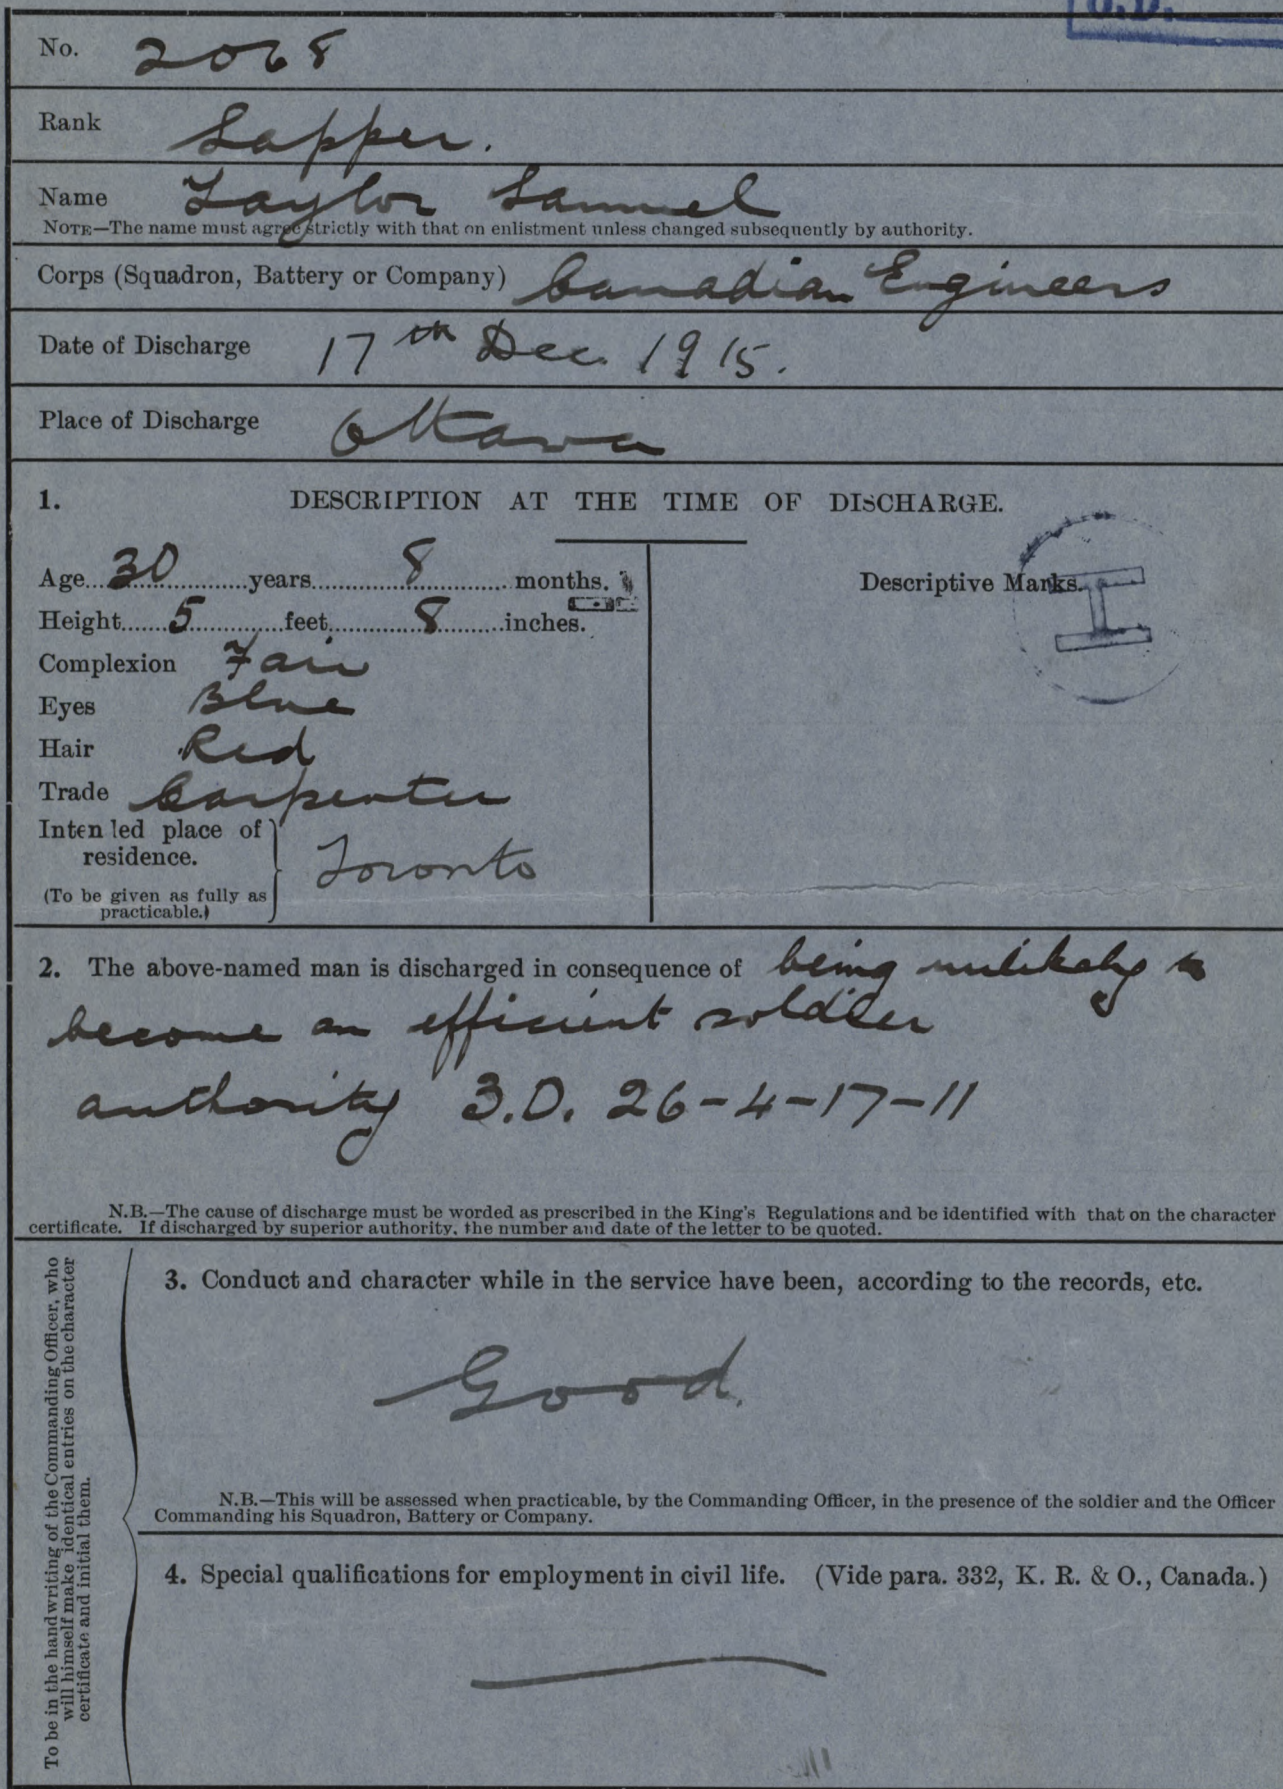 No. 2068
Rank Sapper.
Name Taylor Samuel
NOTE—The name must agree strictly with that on enlistment unless changed subsequently by authority.
Corps (Squadron, Battery or Company) Canadian Engineers
Date of Discharge 17th Dec. 1915.
Place of Discharge Ottawa
1. DESCRIPTION AT THE TIME OF DISCHARGE.
Age...30...years...8...months.
Height...5...feet...8...inches.
Complexion Fair
Eyes Blue
Hair Red
Trade Carpenter
Intended place of
residence. Toronto
(To be given as fully as
practicable.)
Descriptive Marks.
I
2. The above-named man is discharged in consequence of being unlikely to
become an efficient soldier
authority 3.D. 26-4-17-11
N.B.—The cause of discharge must be worded as prescribed in the King's Regulations and be identified with that on the character
certificate. If discharged by superior authority, the number and date of the letter to be quoted.
To be in the handwriting of the Commanding Officer, who
will himself make identical entries on the character
certificate and initial them.
3. Conduct and character while in the service have been, according to the records, etc.
Good.
N.B.—This will be assessed when practicable, by the Commanding Officer, in the presence of the soldier and the Officer
Commanding his Squadron, Battery or Company.
4. Special qualifications for employment in civil life. (Vide para. 332, K. R. & O., Canada.)